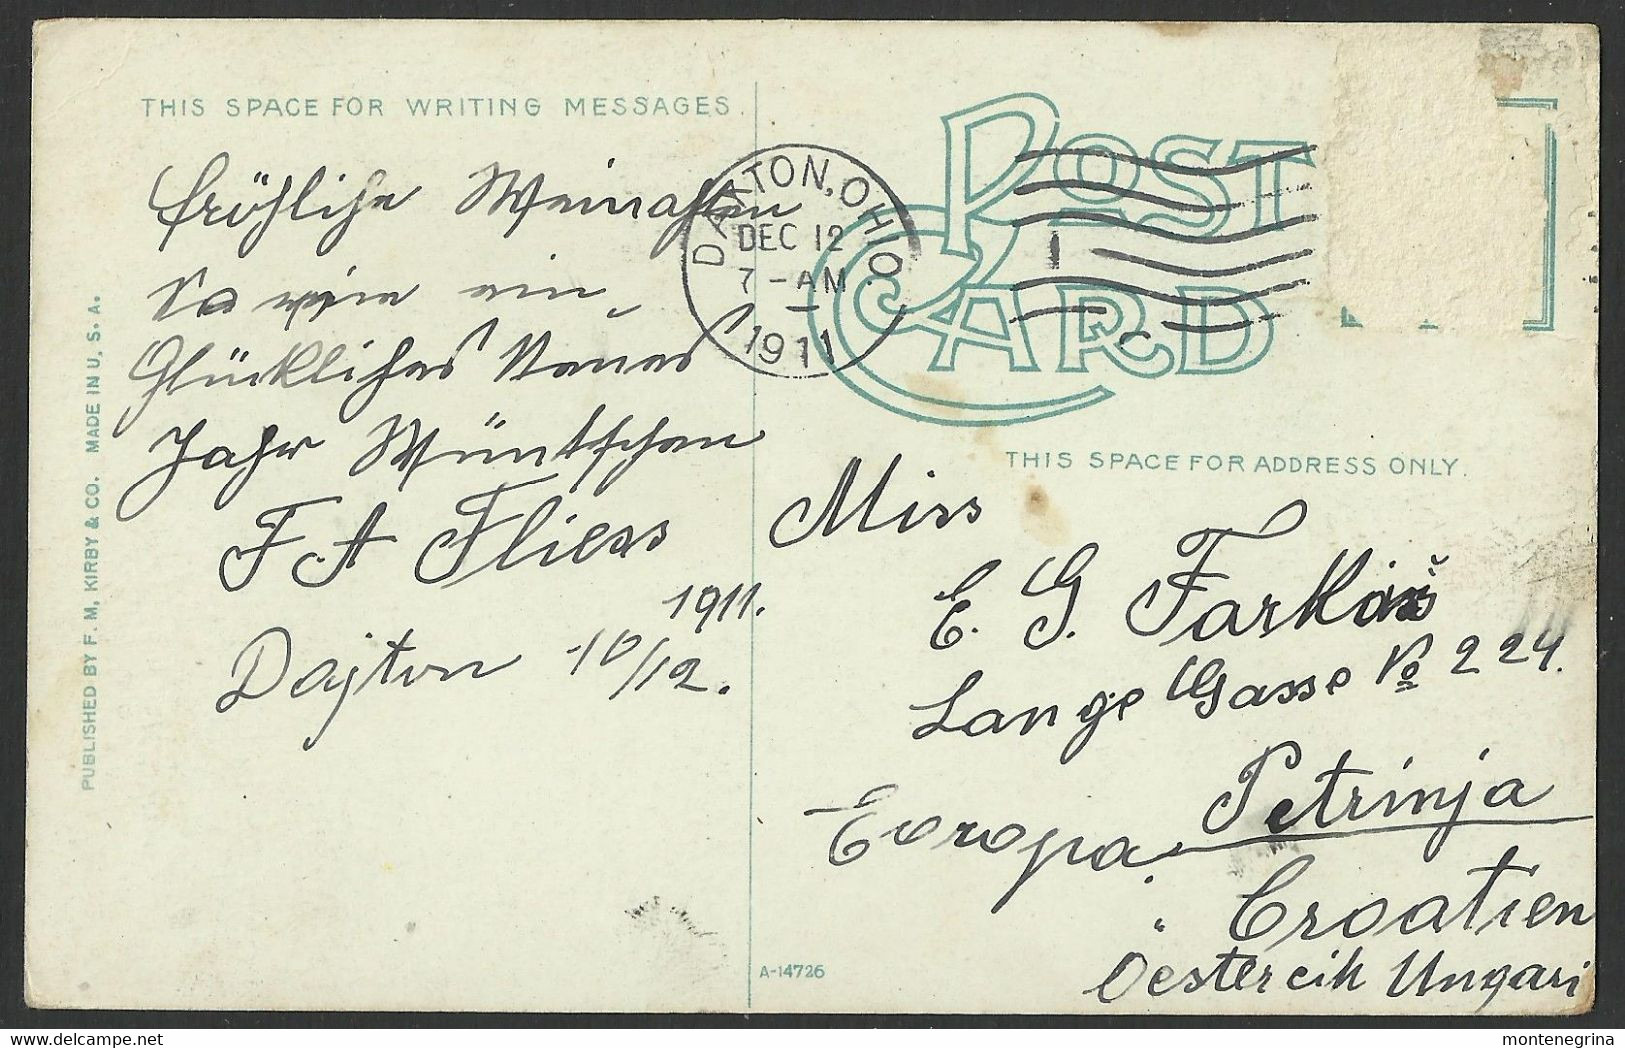 THIS SPACE FOR WRITING MESSAGES
POST CARD
THIS SPACE FOR ADDRESS ONLY.
PUBLISHED BY F. M. KIRBY & CO. MADE IN U. S. A.
A-14726
DAYTON, OHIO.
DEC 12
7-AM
1911
fröhliche Weinachten
So wie ein
Glückliches Neues
Jahr Wüntschen
F A Fliess
1911.
Dajton 10/12.
Miss
E. G. Farkaš
Lange Gasse No 224.
Petrinja
Evropa.
Croatien
Oestereich Ungari
montenegrina